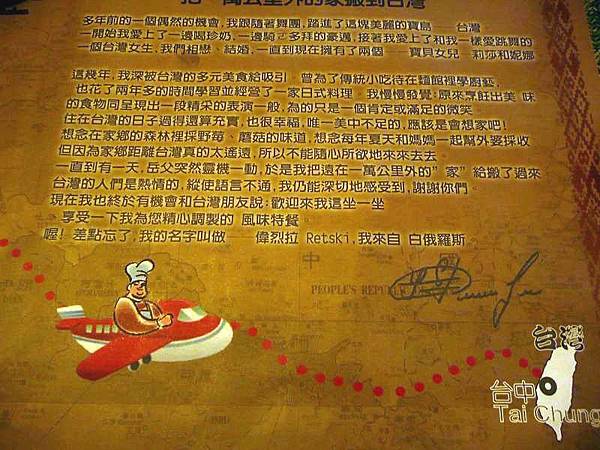 把一萬公里外的家搬到台灣
多年前的一個偶然的機會,我跟隨著舞團,踏進了這塊美麗的寶島——台灣
一開始我愛上了一邊喝珍奶,一邊騎ㄛ多拜的豪邁,接著我愛上了和我一樣愛跳舞的
一個台灣女生,我們相戀、結婚,一直到現在擁有了兩個——寶貝女兒 莉莎和妮娜
這幾年,我深被台灣的多元美食給吸引,曾為了傳統小吃待在麵館裡學廚藝,
也花了兩年多的時間學習並經營了一家日式料理。我慢慢發覺:原來烹飪出美 味
的食物同呈現出一段精采的表演一般,為的只是一個肯定或滿足的微笑
住在台灣的日子過得還算充實,也很幸福,唯一美中不足的,應該是會想家吧!
想念在家鄉的森林裡採野莓、蘑菇的味道,想念每年夏天和媽媽一起幫外婆採收
但因為家鄉距離台灣真的太遙遠,所以不能隨心所欲地來來去去。
一直到有一天,岳父突然靈機一動,於是我把遠在一萬公里外的”家”給搬了過來
台灣的人們是熱情的,縱使語言不通,我仍能深切地感受到,謝謝你們。
現在我也終於有機會和台灣朋友說:歡迎來我這坐一坐
享受一下我為您精心調製的 風味特餐。
喔! 差點忘了,我的名字叫做——偉烈拉 Retski,我來自 白俄羅斯
中
PEOPLE'S REPUB
台灣
台中
Tai Chung